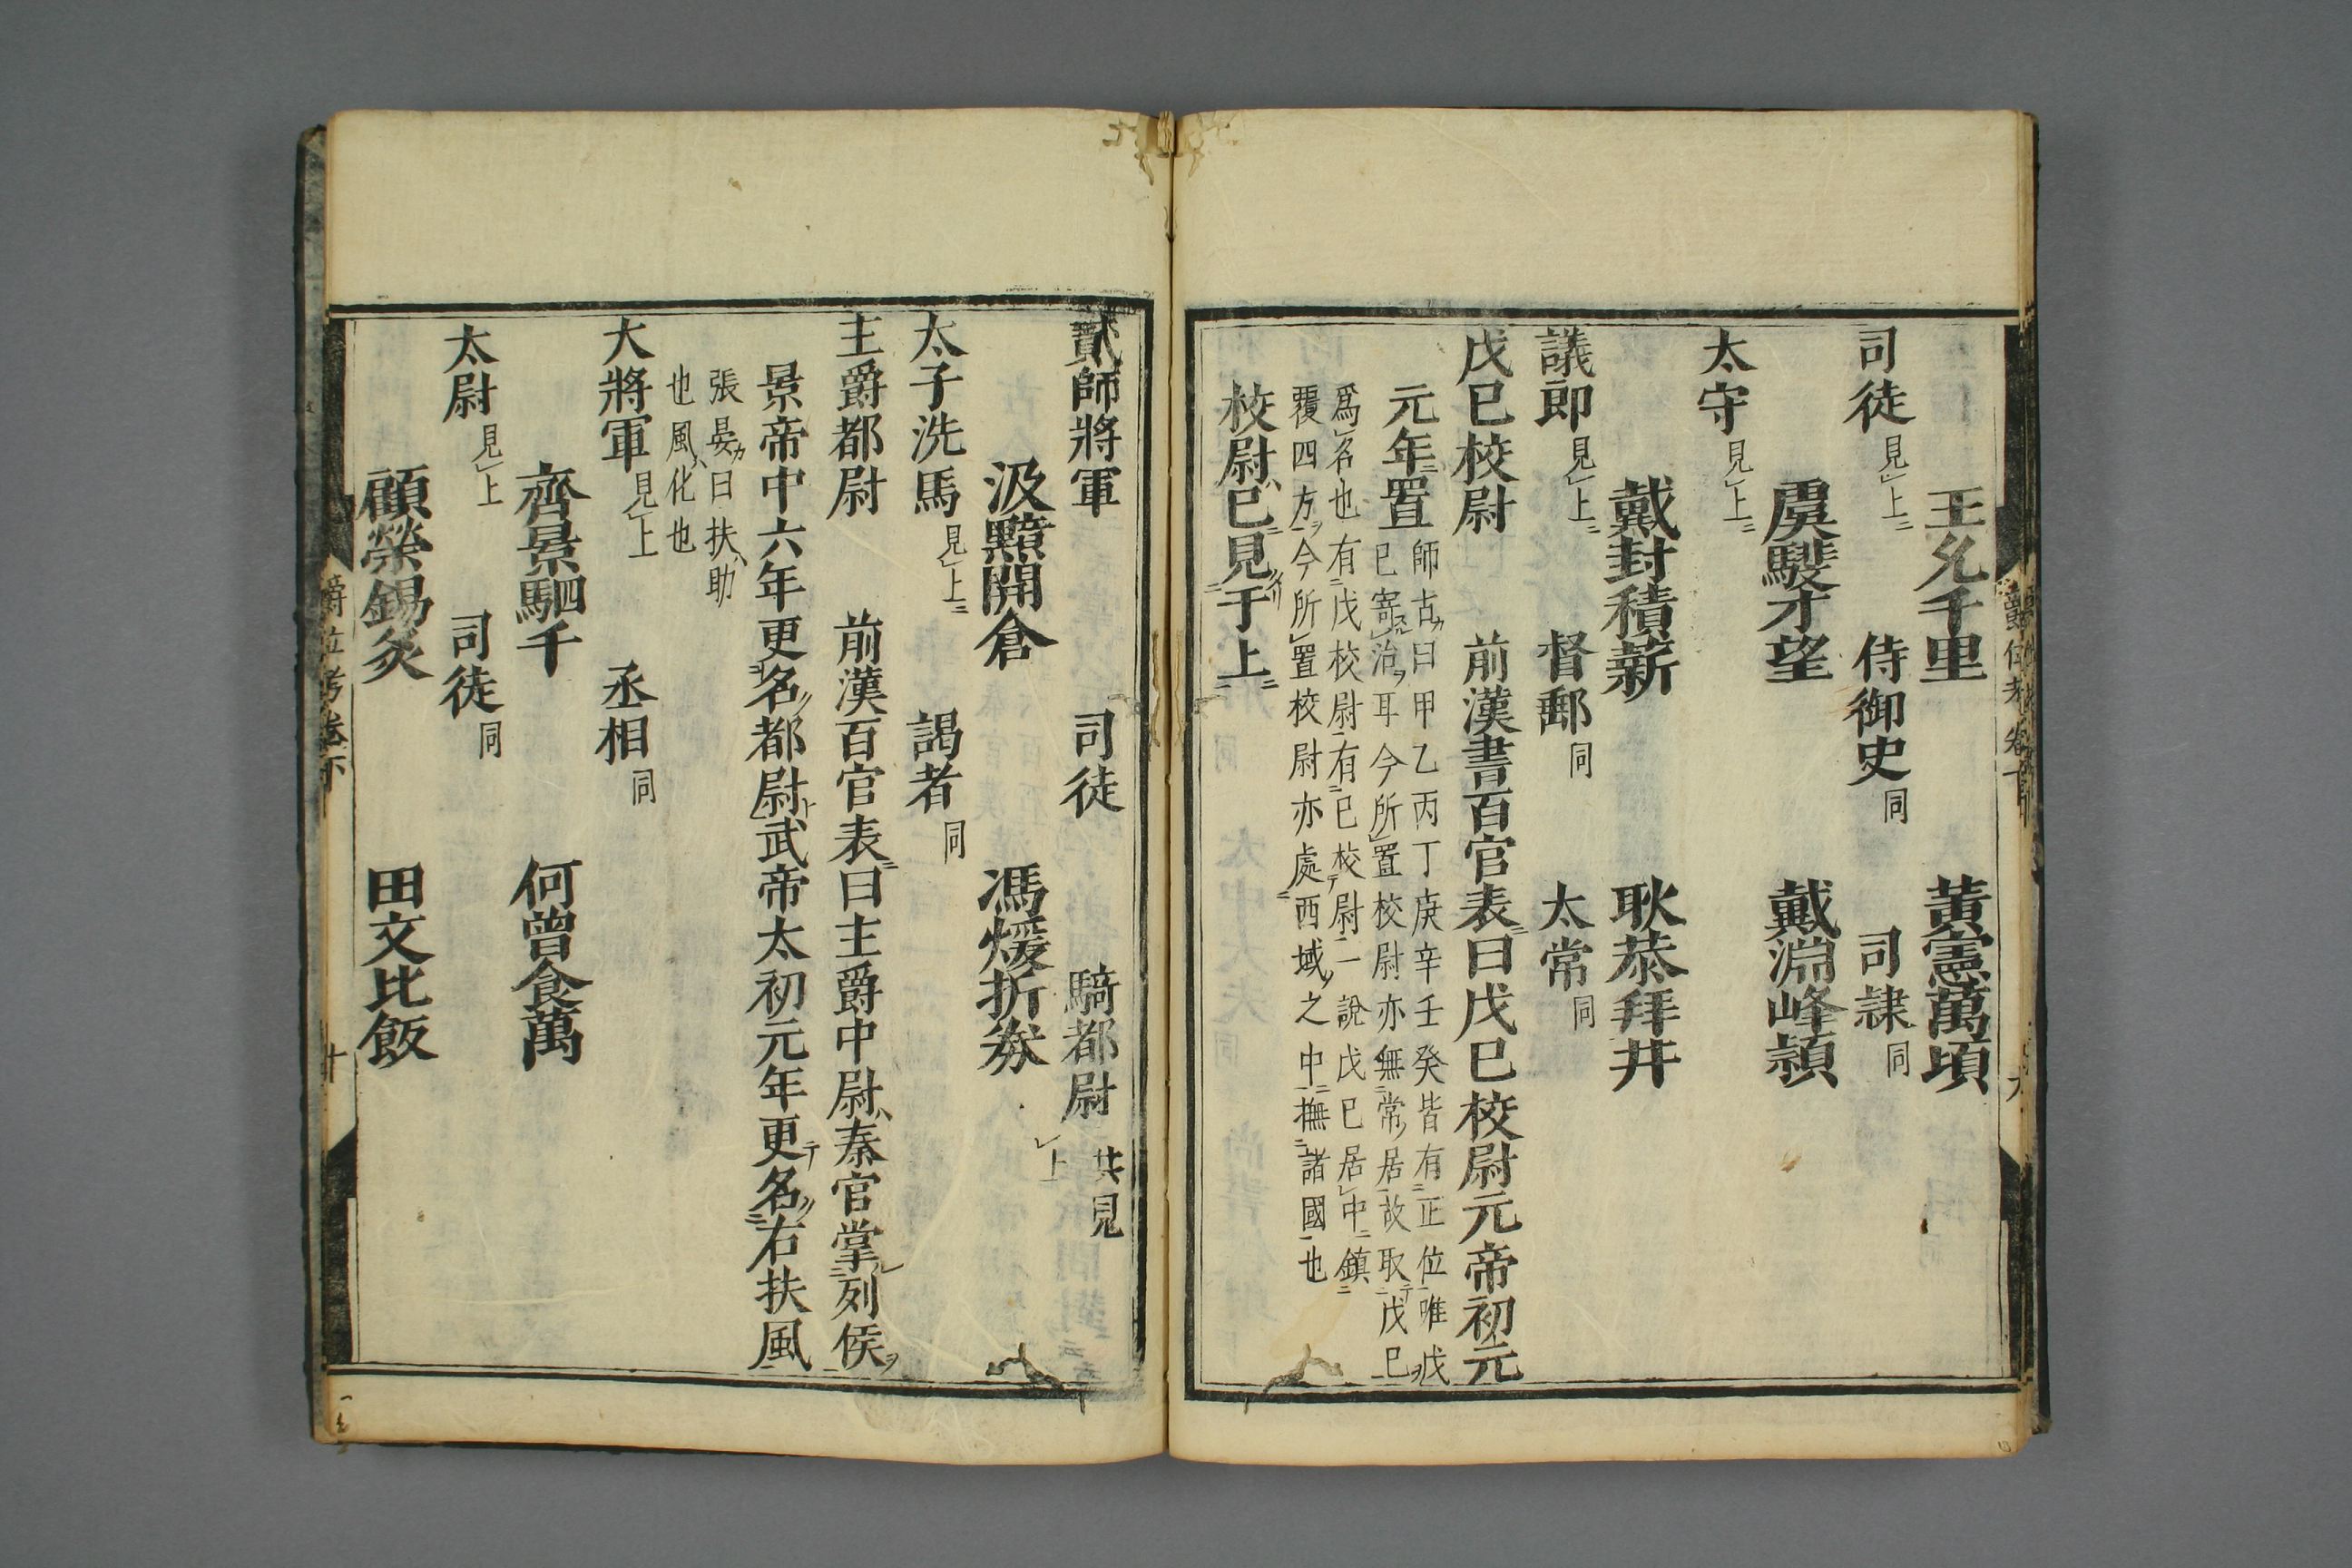 王允千里　黃憲萬頃
司徒見上　侍御史同　司隷同
虞騣才望　戴淵峰頴
太守見上
戴封積薪　耿恭拜井
議郎見上　督郵同　太常同
戊巳校尉　前漢書百官表曰戊巳校尉元帝初元
元年置
師古曰甲乙丙丁庚辛壬癸皆有正位唯戊
巳寄治耳今所置校尉亦無常居故取戊巳
爲名也有戊校尉有巳校尉一說戊巳居中鎮
覆四方今所置校尉亦處西域之中撫諸國也
校尉巳見于上
貳師將軍　司徒　騎都尉　共見上
汲黯開倉　馮煖折券
太子洗馬見上　謁者同
主爵都尉　前漢百官表曰主爵中尉秦官掌列侯
景帝中六年更名都尉武帝太初元年更名右扶風
張晏曰扶助
也風化也
大將軍見上　丞相同
齊景駟千　何曾食萬
太尉見上　司徒同
顧榮錫炙　田文比飯
爵位考卷下　十